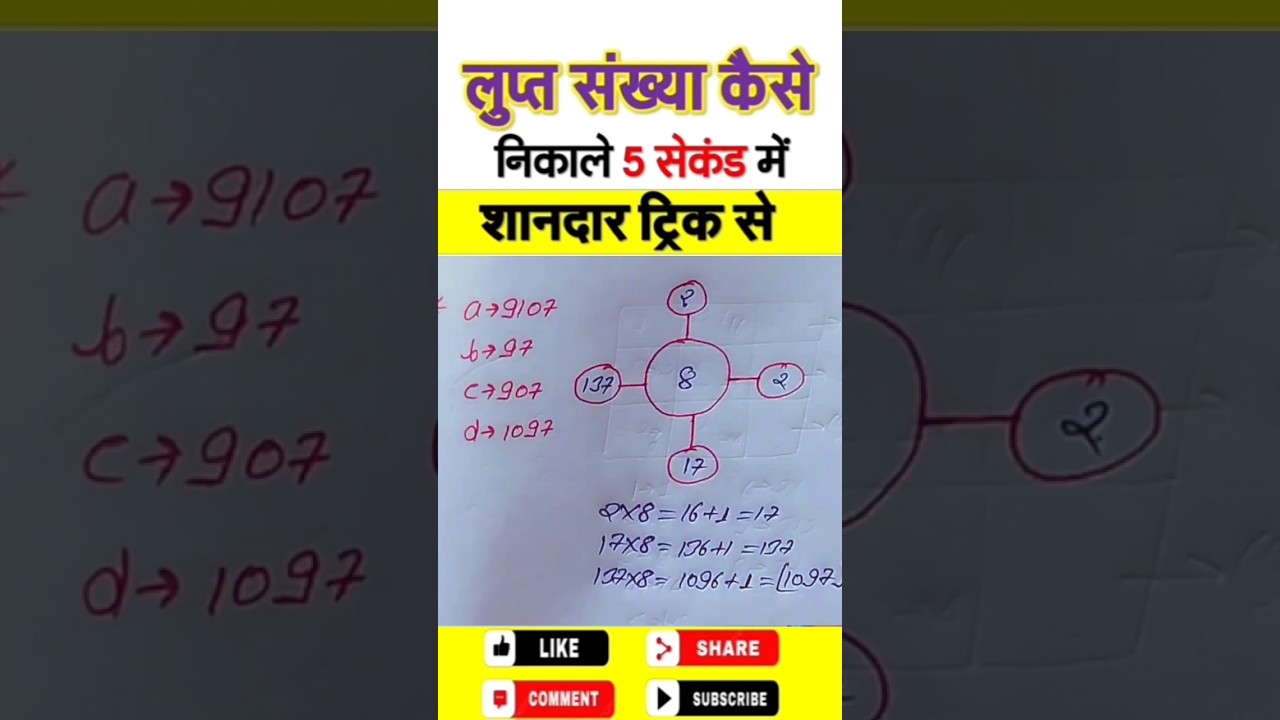 लुप्त संख्या कैसे
निकाले 5 सेकंड में
शानदार ट्रिक से
a→9107
b→97
c→907
d→1097
2
137
8
2
17
2×8=16+1=17
17×8=136+1=137
137×8=1096+1=[1097
LIKE
SHARE
COMMENT
SUBSCRIBE
a→9107
b→97
c→907
d→1097
2